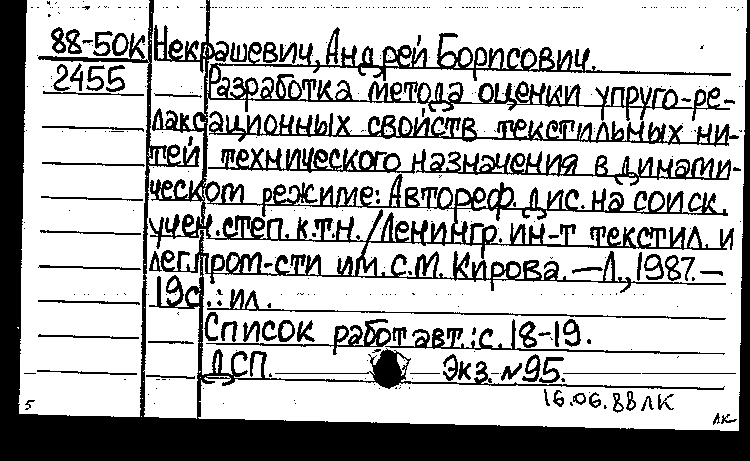 88-50К Некрашевич, Андрей Борисович.
2455 Разработка метода оценки упруго-ре-
лаксационных свойств текстильных ни-
тей технического назначения в динами-
ческом режиме: Автореф. дис. на соиск.
учен. степ. к.т.н. /Ленингр. ин-т текстил. и
лег. пром-сти им. С.М. Кирова. — Л., 1987. —
19с.: ил.
Список работ авт.: с. 18-19.
ДСП. Экз. №95.
16.06.88 ЛК
5 Л.К.